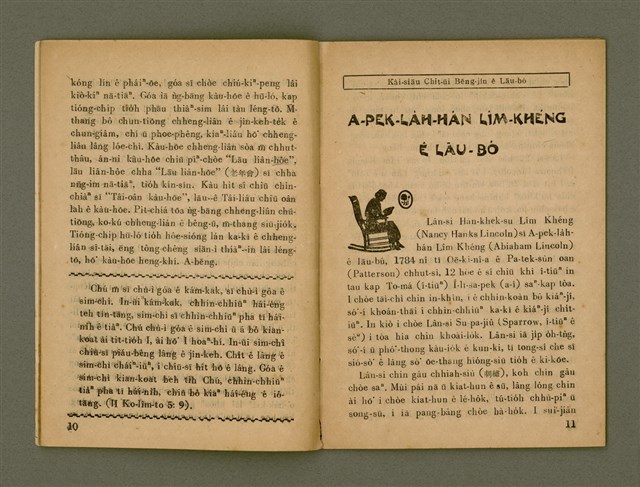 kóng lín ê pháiⁿ-ōe, góa sī chòe chiú-kiⁿ-peng lâi
kiò-kiⁿ nā-tiāⁿ. Góa iā ǹg-bāng kàu-hōe ê hū-ló, kap
tióng-chip tio̍h phāu thiàⁿ-sim lâi tàn léng-tō. M̄-
thang bô chun-tiōng chheng-liân ê jîn-keh-te̍k ê
chun-giâm, chi ū phoe-phêng, kiaⁿ-liáu hō͘ chheng-
liân lâng lóe-chi. Kàu-hōe chheng-liân sòa m̄ chhut-
thâu, án-ni kàu-hōe chiū piⁿ-chòe "Lāu liân-hōe",
lāu liân-hōe chha "Lāu liân-hōe" (老年會) sī chha
nn̄g-im nā-tiāⁿ, tio̍h kín-sīn. Káu hit sî chiū chin-
chiàⁿ sī "Tâi-oân kàu-hōe", lāu-ê Tâi-liâu chiū oân
lah ê kàu-hōe. Pit-chiá tōa ǹg-bāng chheng-liân chú-
tiōng, ko-kú chheng-liân ê bêng-ū, m̄-thang siu-jio̍k,
Tiông-chip hū-ló tio̍h hōe-sióng lán ka-kī ê chheng-
liân sî-tāi, ēng tông-chêng siān-ì thiàⁿ-in lâi léng-
tō, hō͘ kàu-hōe heng-khí. A-bēng.
Chú m̄ sī chú-ì góa ê kám-kak, sī chú-ì góa ê
sim-chì. In-ūi kám-kak, chhin-chhiūⁿ hái-éng
teh tín-tāng, sim-chì sī chhin-chhiūⁿ pha tī hái-
ni̍h ê tiāⁿ. Chú chú-ì góa ê sim-chì ū á bô kian-
koat ài tit-tio̍h I, ài hō͘ I hoaⁿ-hí. In-ūi sim-chì
chiū-sī piáu-bêng lâng ê jîn-keh. Chi̍t ê lâng ê
sim-chì chāiⁿ-iūⁿ, i chiū-sī hit hō ê lâng. Góa ê
sim-chì kian-koat beh ti̍h Chú, chhin-chhiūⁿ
tiāⁿ pha tī hái-ni̍h, chiū bô kiaⁿ hái-éng ê iô-
tāng. (II Ko-lîm-to 5: 9).
10
Kài-siāu Chi̍t-ūi Bêng-jîn ê Lāu-bó
A-PEK-LA̍H-HÁN LÎM-KHÉNG
Ê LĀU-BÓ
Lân-si Han-khek-su Lîm Khéng
(Nancy Hanks Lincoln) sī A-pek-la̍h-
hán Lîm Khéng (Abiaham Lincoln)
ê lāu-bú, 1784 nî tī Oē-ki-ní-a ê Pa-tek-sún oan
(Patterson) chhut-sì, 12 hoe ê sî chiū khì í-tiūⁿ in
tau kap To-má (î-tiūⁿ) Í-li-sa-pek (a-î) saⁿ-kap tòa.
I chòe tāi-chì chin in-khîn, i ê chhin-koân bô kiáⁿ-jî,
só͘-í khoán-thāi i chhin-chhiūⁿ ka-kī ê kiáⁿ-jî chi̍t-
iūⁿ. In kiò i chòe Lân-si Su pa-jiú (Sparrow, î-tiūⁿ ê
sèⁿ) i tòa hia chin khoài-lo̍k. Lân-si iā jip o̍h-tn̂g,
só͘-í ū phó͘-thong kàu-io̍k ê kun-ki, tī tong-sî che sī
sió-sò͘ ê lâng só͘ ōe-thang hióng-siū tio̍h ê kī-kōe.
Lân-si chin gâu chhiah-siù (刺繡), koh chin gâu
chòe saⁿ. Múi pái nā ū kiat-hun ê sū, lâng lóng chin
ài hō͘ i chòe kiat-hun ê lé-ho̍k, tú-tio̍h chhù-piⁿ ū
song-sū, i iā pang-bâng chòe hà-ho̍k. I sui-jiân
11